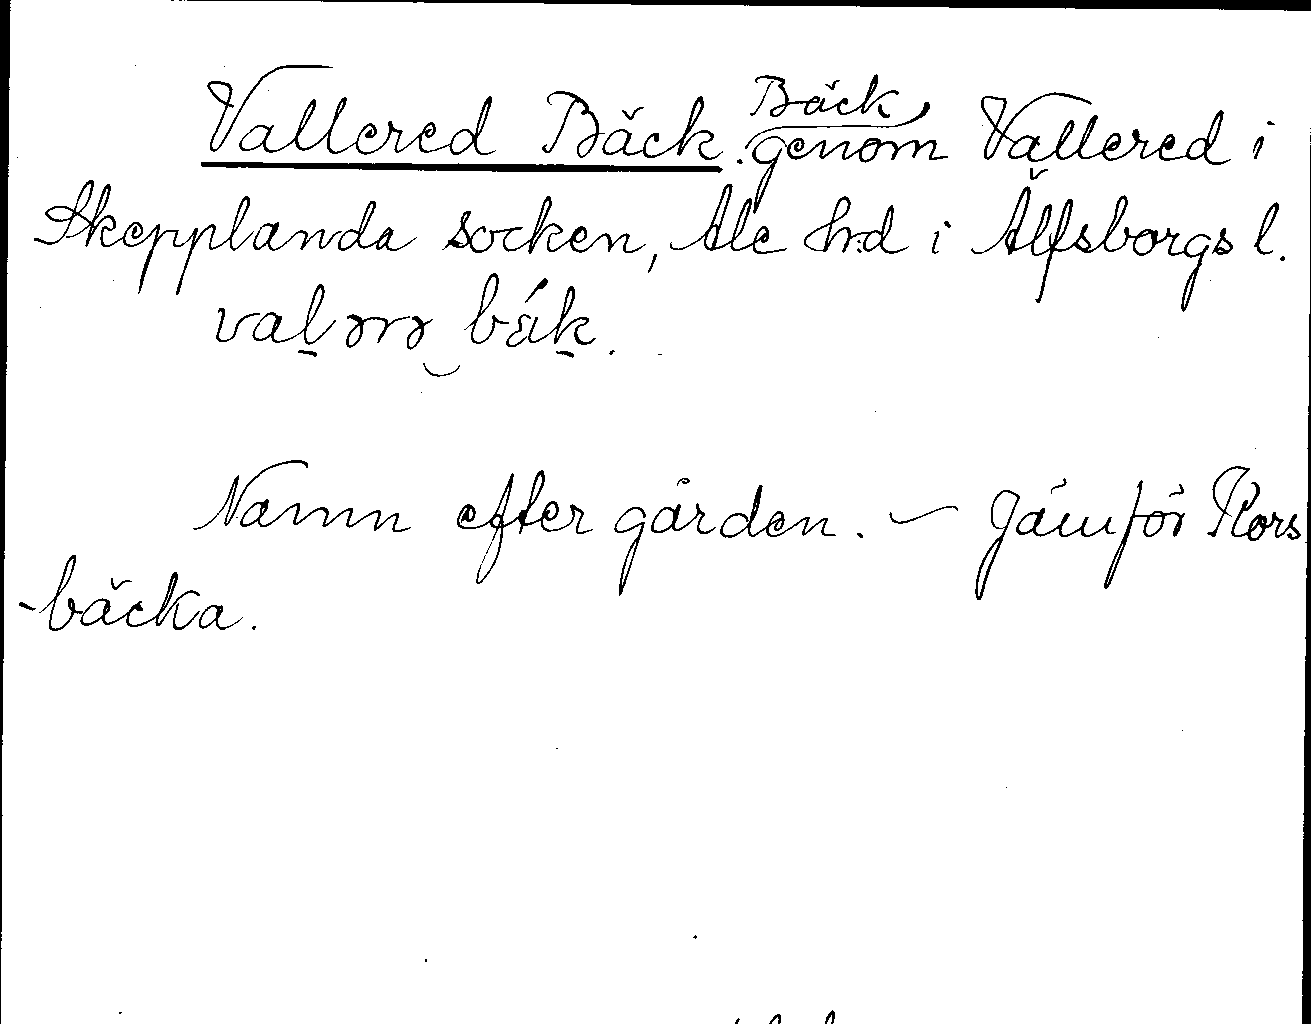 Vallered Bäck. Bäck genom Vallered i
Skepplanda socken, Ale hd i Älfsborgs l.
valərə bäk.
Namn efter gården. – Jämför Kors
-bäcka.